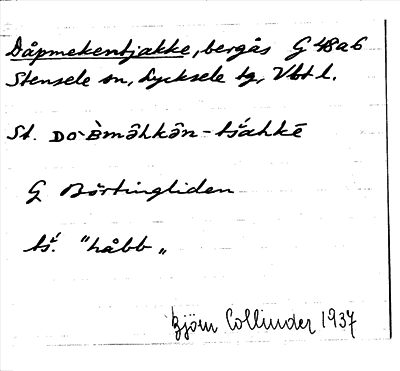 Dåpmekentjakke, bergås G 48 a b
Stensele sn, Lycksele tg, Vbt l.
St. DO·Èmâhkân-tśahkē
G Börtingliden
tś. "håbb"
Björn Collinder 1937